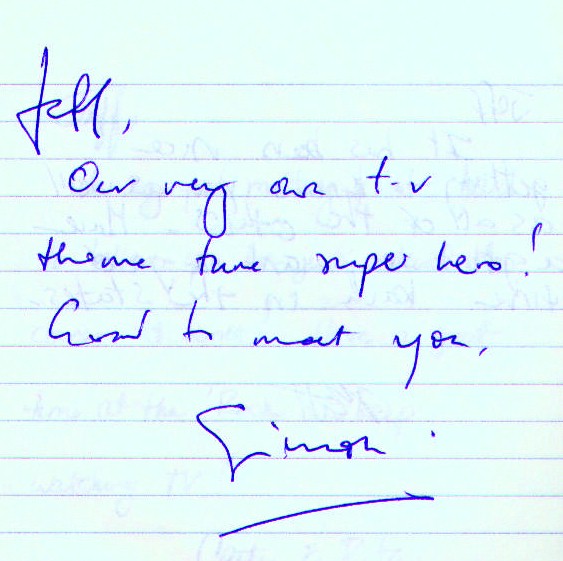 Jeff,
Our very own t-v
theme tune super hero!
Good to meet you.
Simon.